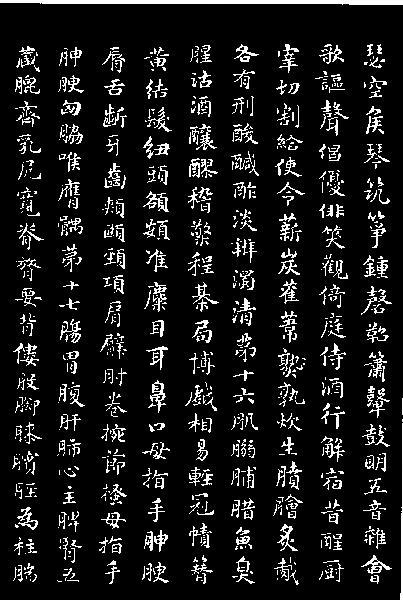 瑟空侯琴筑箏鍾磬鞀簫鼙鼓鳴五音雜會
歌謳聲倡優俳笑觀倚庭侍酒行解宿昔醒厨
宰切割給使令薪炭萑葦孰炊生膹膾炙胾
各有刑酸鹹酢淡辨濁清第十六肌脯腊魚臭
腥沽酒釀醪稽程棊局博戲相易輕冠幘簪
黄結髮紐頭頟頞准麋目耳鼻口母指手胂腴
脣舌齗牙齒頰頤頸項肩臂肘卷捥節搔母指手
胂腴匈脇喉膺髃第十七腸胃腹肝肺心主脾腎五
藏齊乳尻寬脊膂要背僂股脚膝臏脛為柱腨